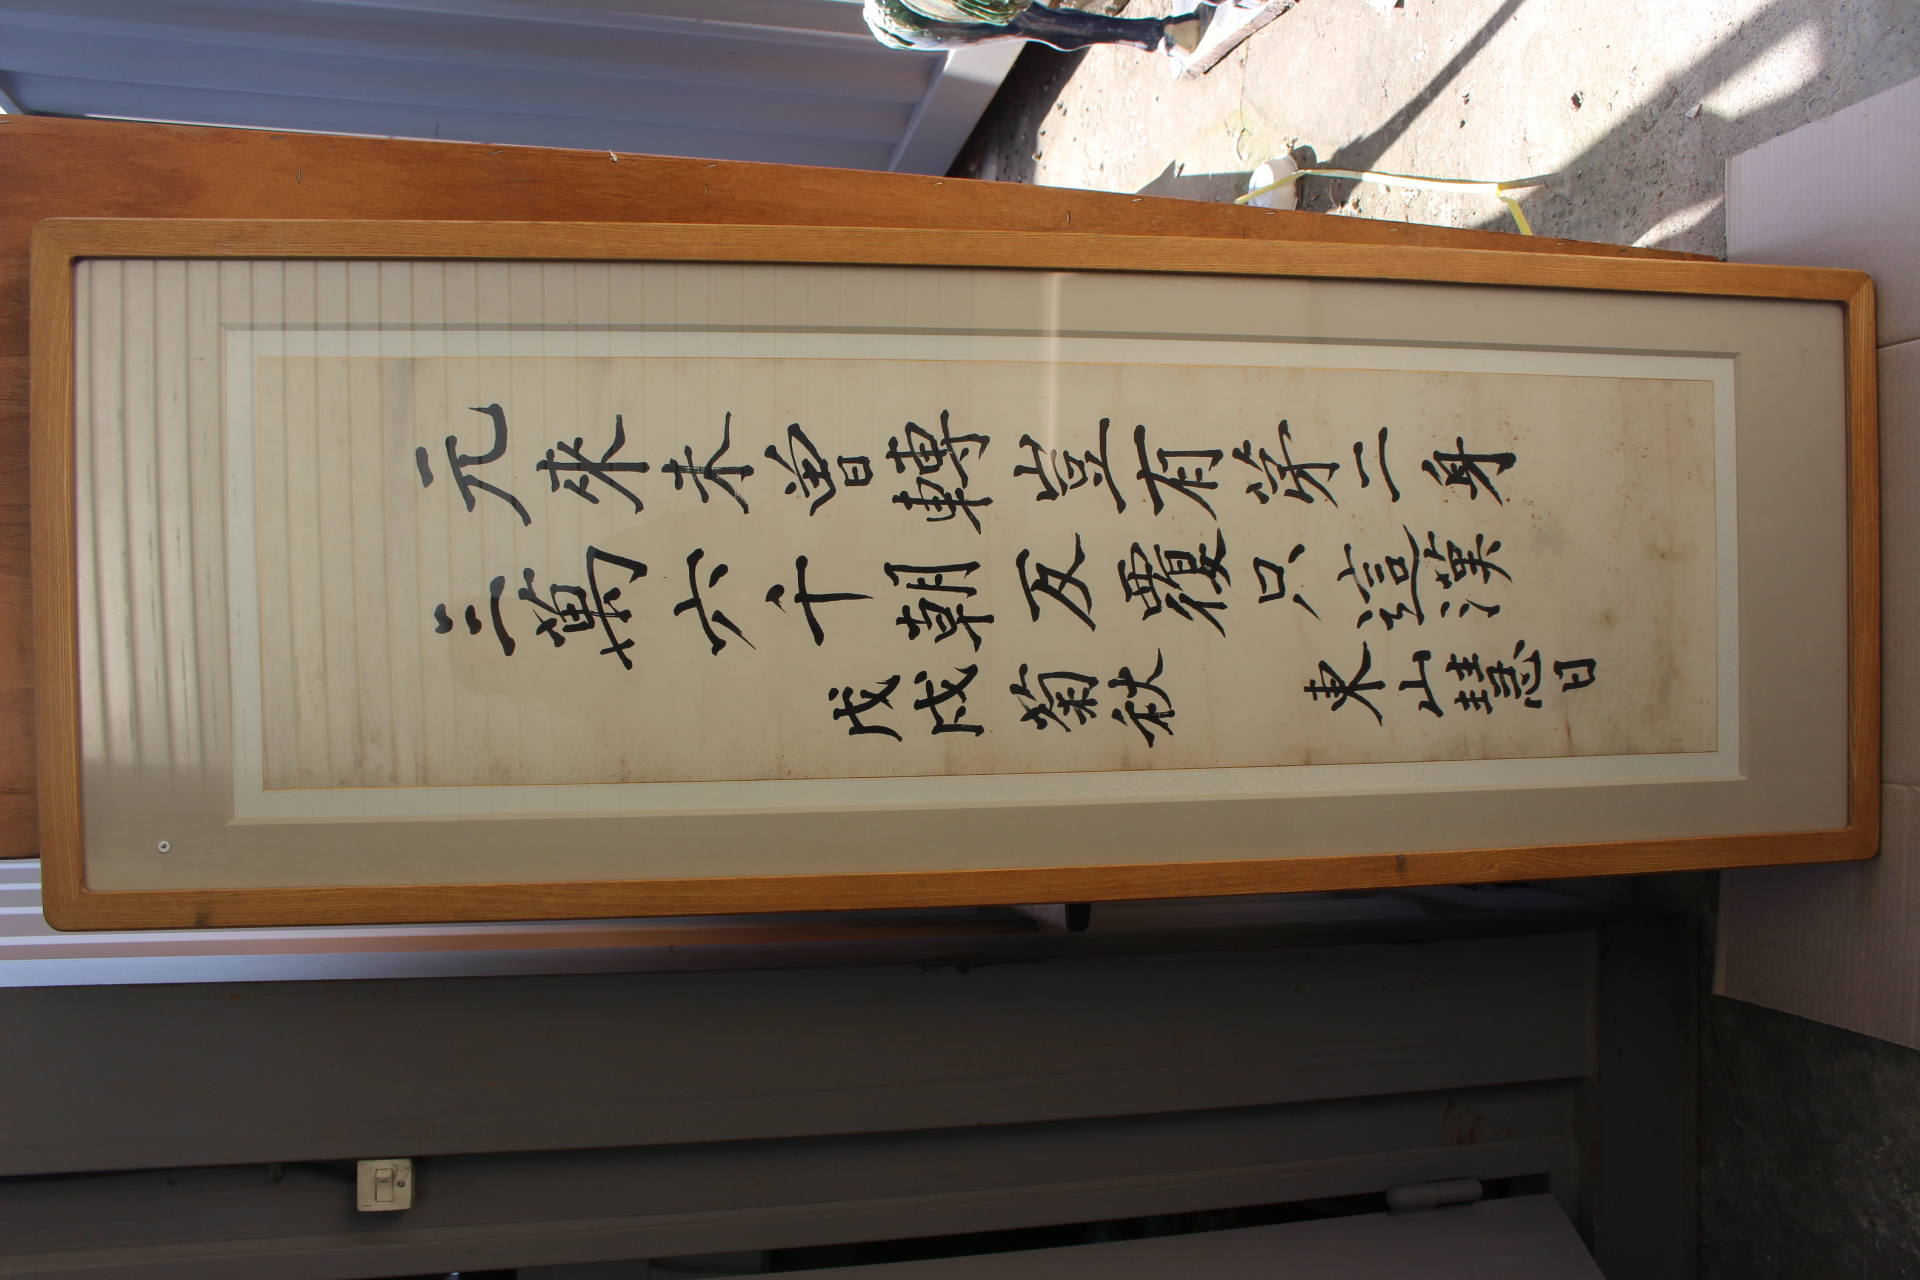 元來未曾轉豈有第二身
三萬六千朝反覆只這漢
戊戌菊秋 東山慧日